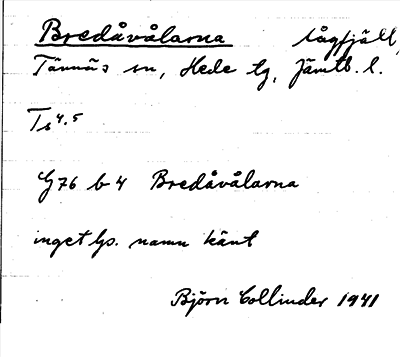 Bredåvålarna lågfjäll,
Tännäs sn, Hede tg, Jämtl. l.
Ts 4.5
G76 b 4 Bredåvålarna
inget lps. namn känt
Björn Collinder 1941